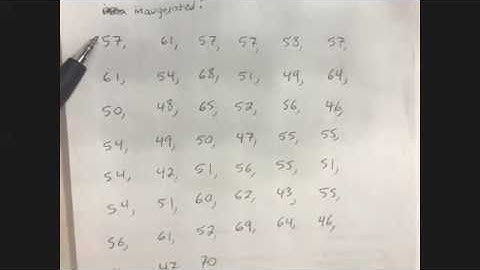 inaugerated:
57, 61, 57, 57, 58, 57,
61, 54, 68, 51, 49, 64,
50, 48, 65, 52, 56, 46,
54, 49, 50, 47, 55, 55,
54, 42, 51, 56, 55, 51,
54, 51, 60, 62, 43, 55,
56, 61, 52, 69, 64, 46,
47 70